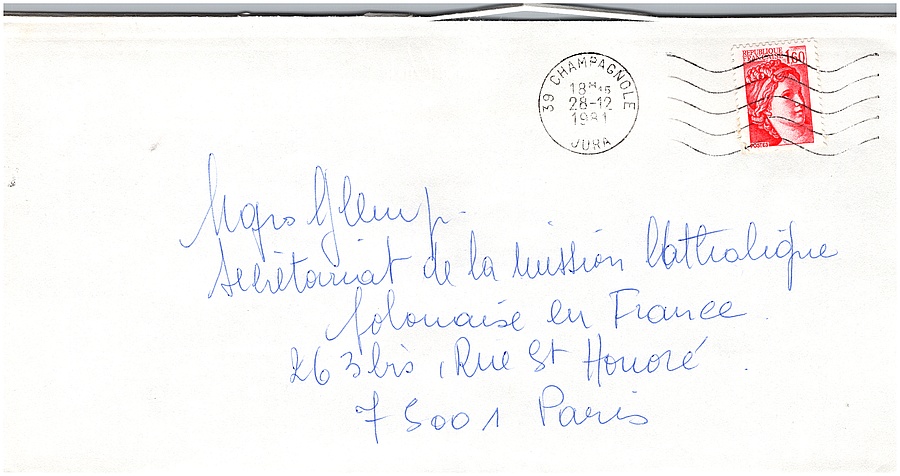 39 CHAMPAGNOLE
18H45
28-12
1981
JURA
REPUBLIQUE
FRANÇAISE 1,60
POSTES
Mgro Glemp.
Secrétariat de la Mission Catholique
Polonaise en France.
263 bis, Rue St Honoré.
75001 Paris